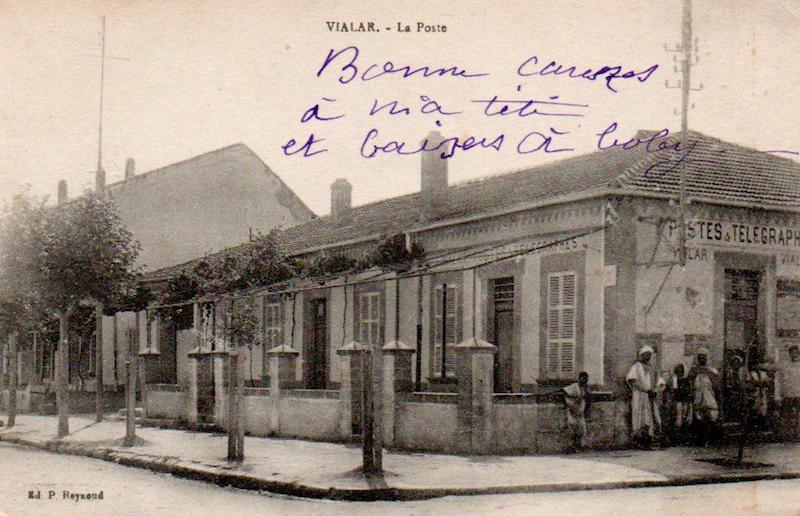 VIALAR. - La Poste
Bonne caresses
à mia titi
et baisers à boby
POSTES & TÉLÉGRAPHES
POSTES & TELEGRAPH
VIALAR VIAL
Ed. P. Reynoud